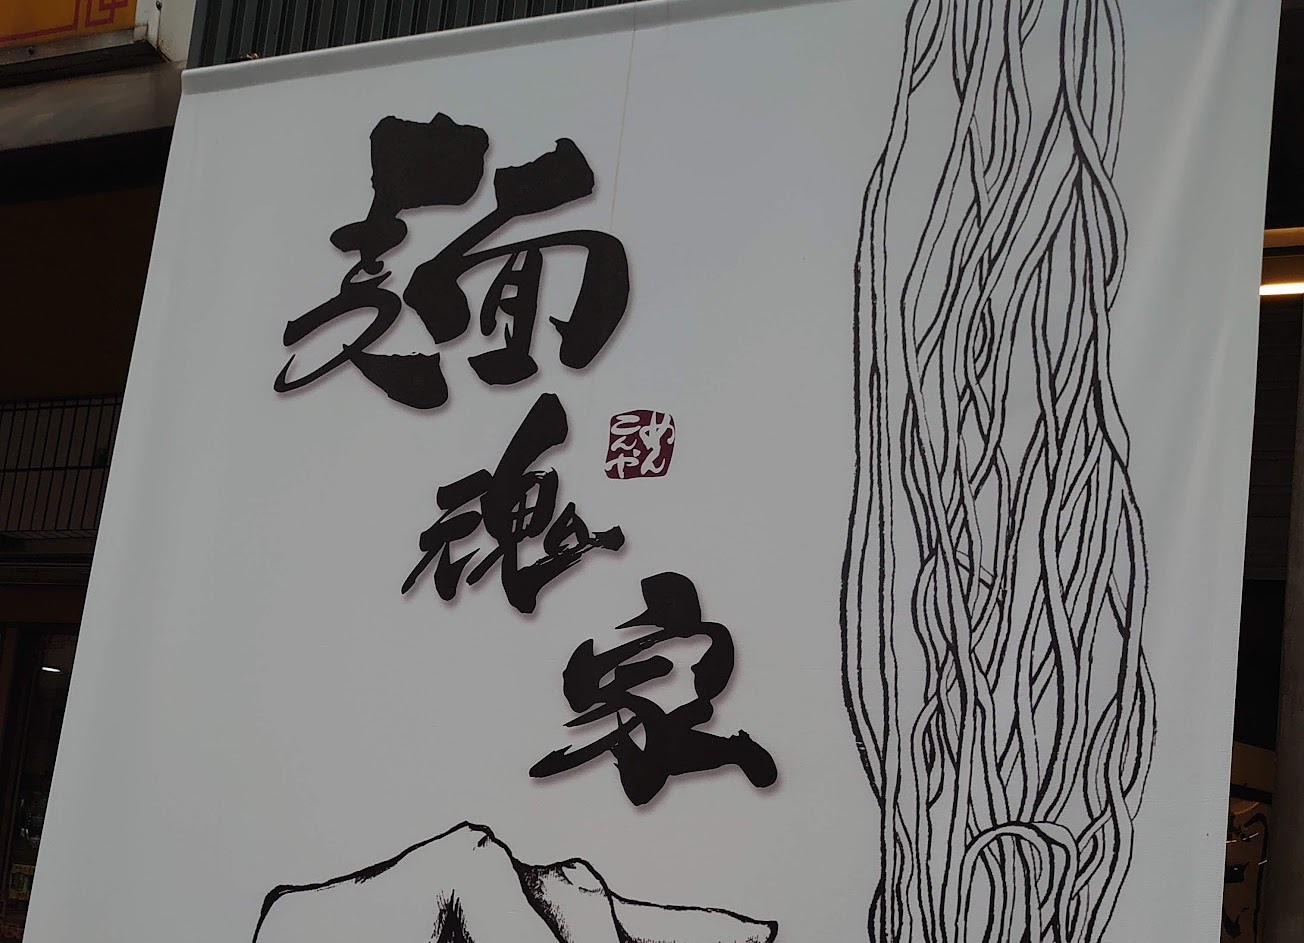 麺
魂
家
めん
こんや